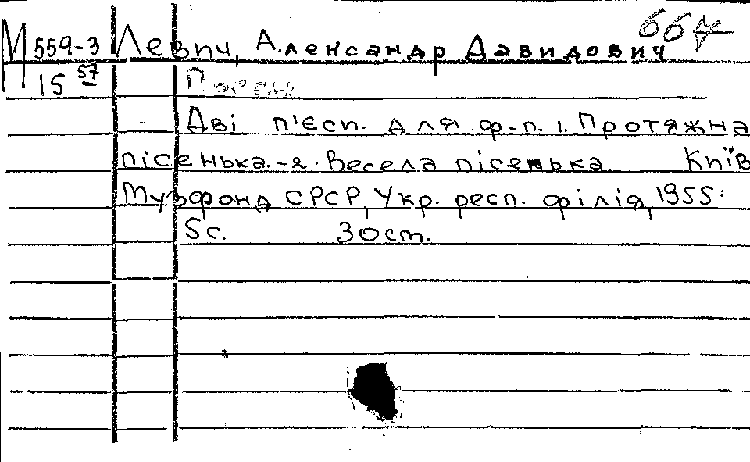 667
М 559-3 Левич, Александр Давидович
15 57
Дві п'єсп. для ф.-п. 1. Протяжна
пісенька.-я. Весела пісенька Київ
Музфонд СРСР, Укр. респ. філія, 1955.
5с. 30ст.